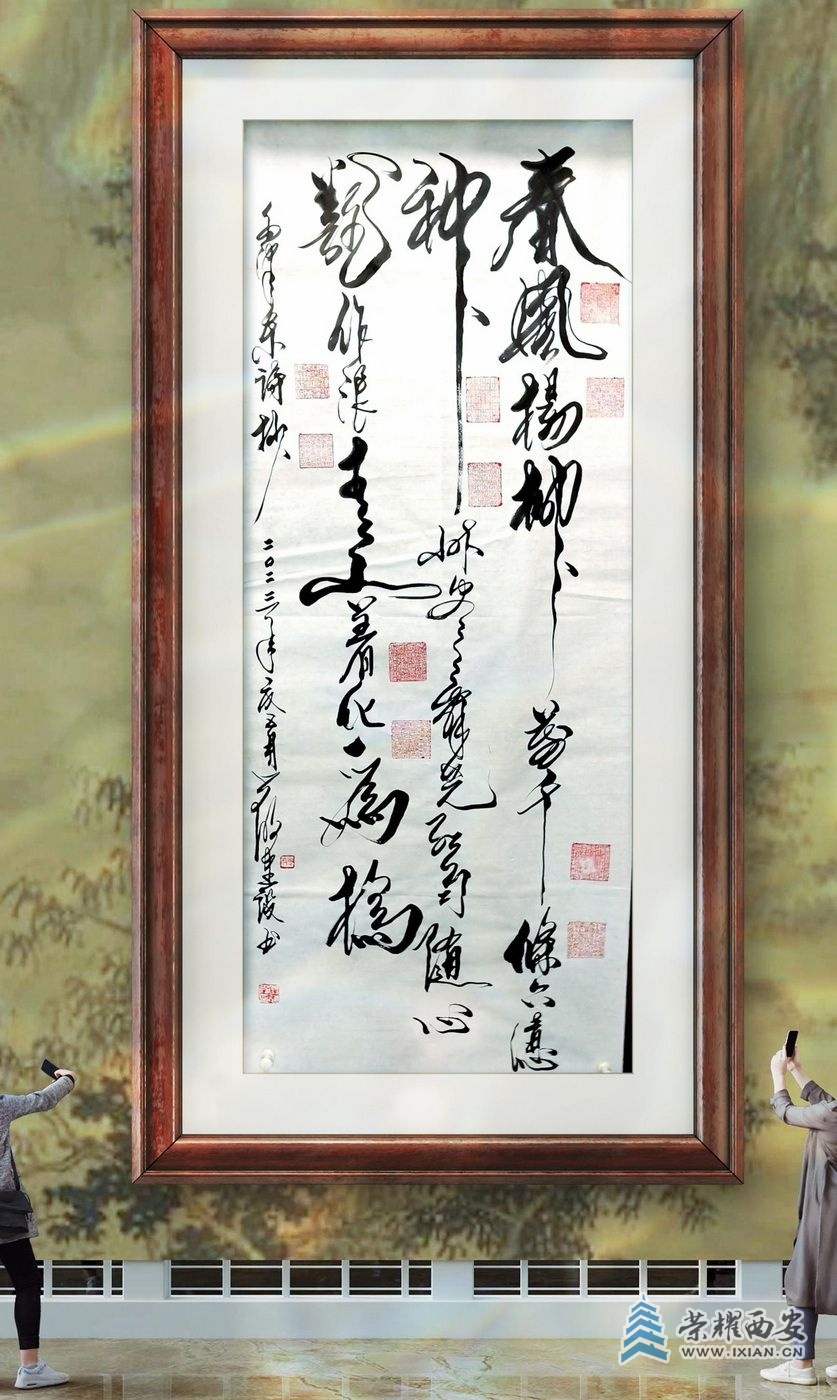 春風楊柳萬千條六億
神州尽舜堯紅雨隨心
翻作浪青山着化為橋
毛澤东詩抄 二〇二三年 建設书
荣耀西安
WWW.IXIAN.CN